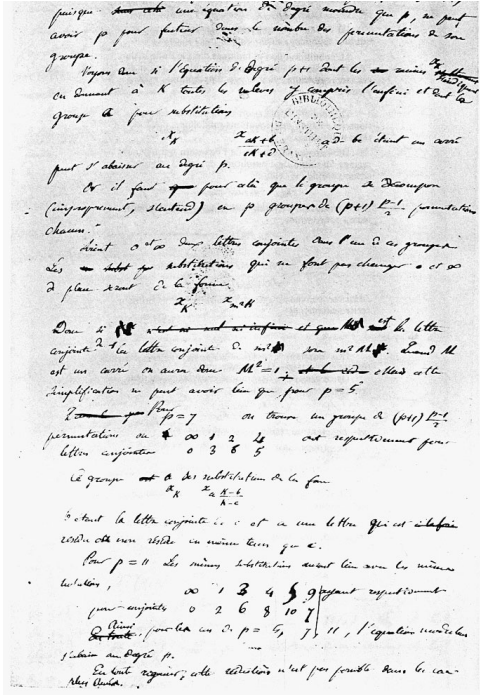 puisque une équation de degré moindre que p, ne peut
avoir p pour facteur dans le nombre des permutations de son
groupe.
Voyons donc si l'équation de degré p+1 dont les racines x_K
en donnant à K toutes les valeurs y compris l'infini et dont le
groupe a pour substitutions
x_K x_{\frac{aK+b}{cK+d}} ad-bc étant un carré
peut s'abaisser au degré p.
Or il faut pour cela que le groupe se décompose
(improprement, s'entend) en p groupes de (p+1) \frac{p-1}{2} permutations
chacun.
Soient 0 et ∞ deux lettres conjointes dans l'un de ces groupes.
Les substitutions qui ne font pas changer 0 et ∞
de place seront de la forme
x_K x_{m²K}
Donc si M est la lettre
conjointe de 1, la lettre conjointe de m² sera m²M. Quand M
est un carré on aura donc M²=1. Mais cette
simplification ne peut avoir lieu que pour p=5.
Pour p=7 on trouve un groupe de (p+1) \frac{p-1}{2}
permutations où ∞ 1 2 4 ont respectivement pour
lettres conjointes 0 3 6 5
Ce groupe a ses substitutions de la forme
x_K x_{a\frac{K-b}{K-c}}
b étant la lettre conjointe de c et a une lettre qui est
résidu ou non résidu en même temps que c.
Pour p=11 les mêmes substitutions auront lieu avec les mêmes
notations,
∞ 1 3 4 5 9 ayant respectivement
pour conjointes 0 2 6 8 10 7
Ainsi pour les cas de p=5, 7, 11, l'équation modulaire
s'abaisse au degré p.
En toute rigueur, cette réduction n'est pas possible dans les cas
plus élevés.